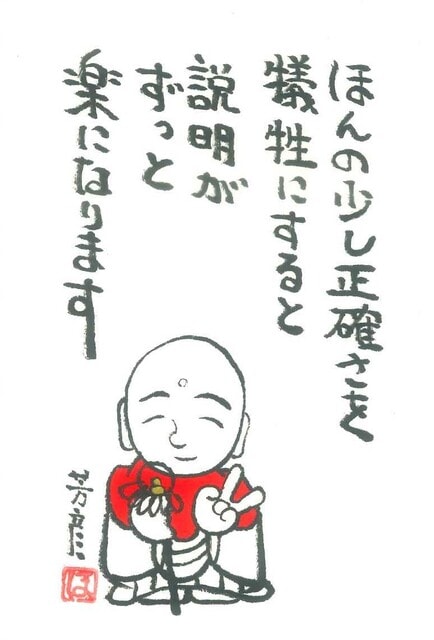 ほんの少し正確さを
犠牲にすると
説明が
ずっと
楽になります
芳彦
ほ